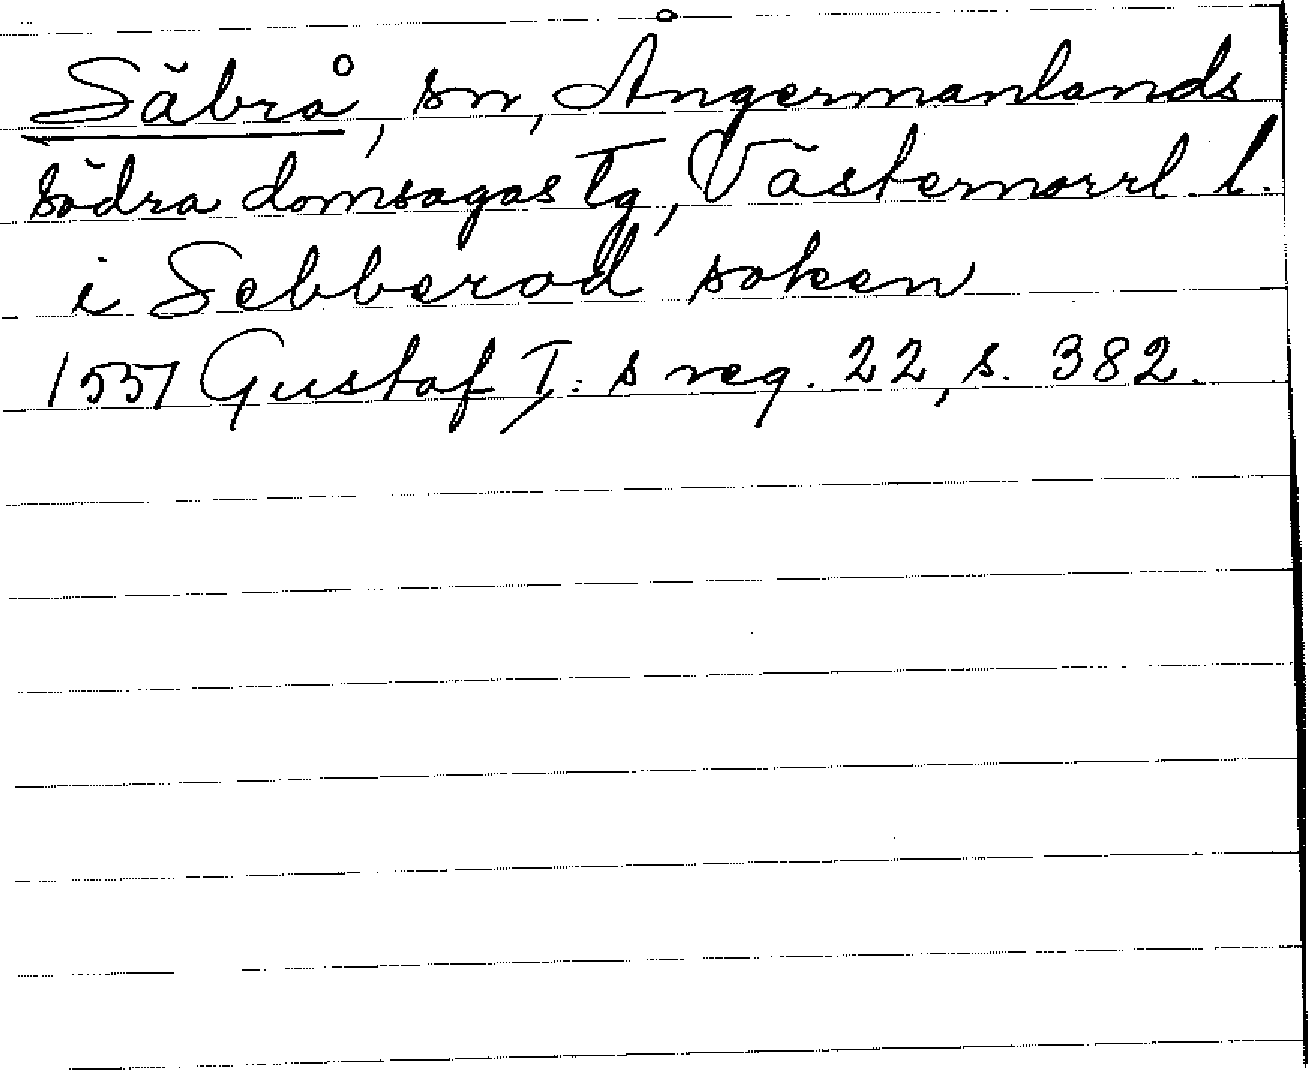 Säbrå, sn, Ångermanlands
södra domsagas tg, Västernorrl. l.
i Sebberod soken
1551 Gustaf I:s reg. 22, s. 382.